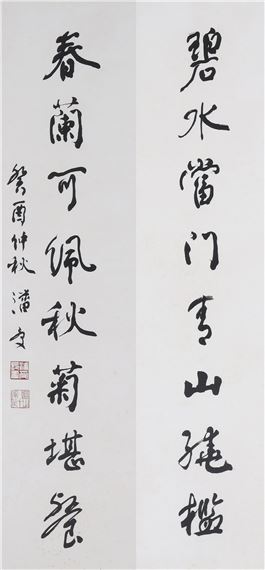 碧水當門青山繞檻
春蘭可佩秋菊堪餐
癸酉仲秋潘主